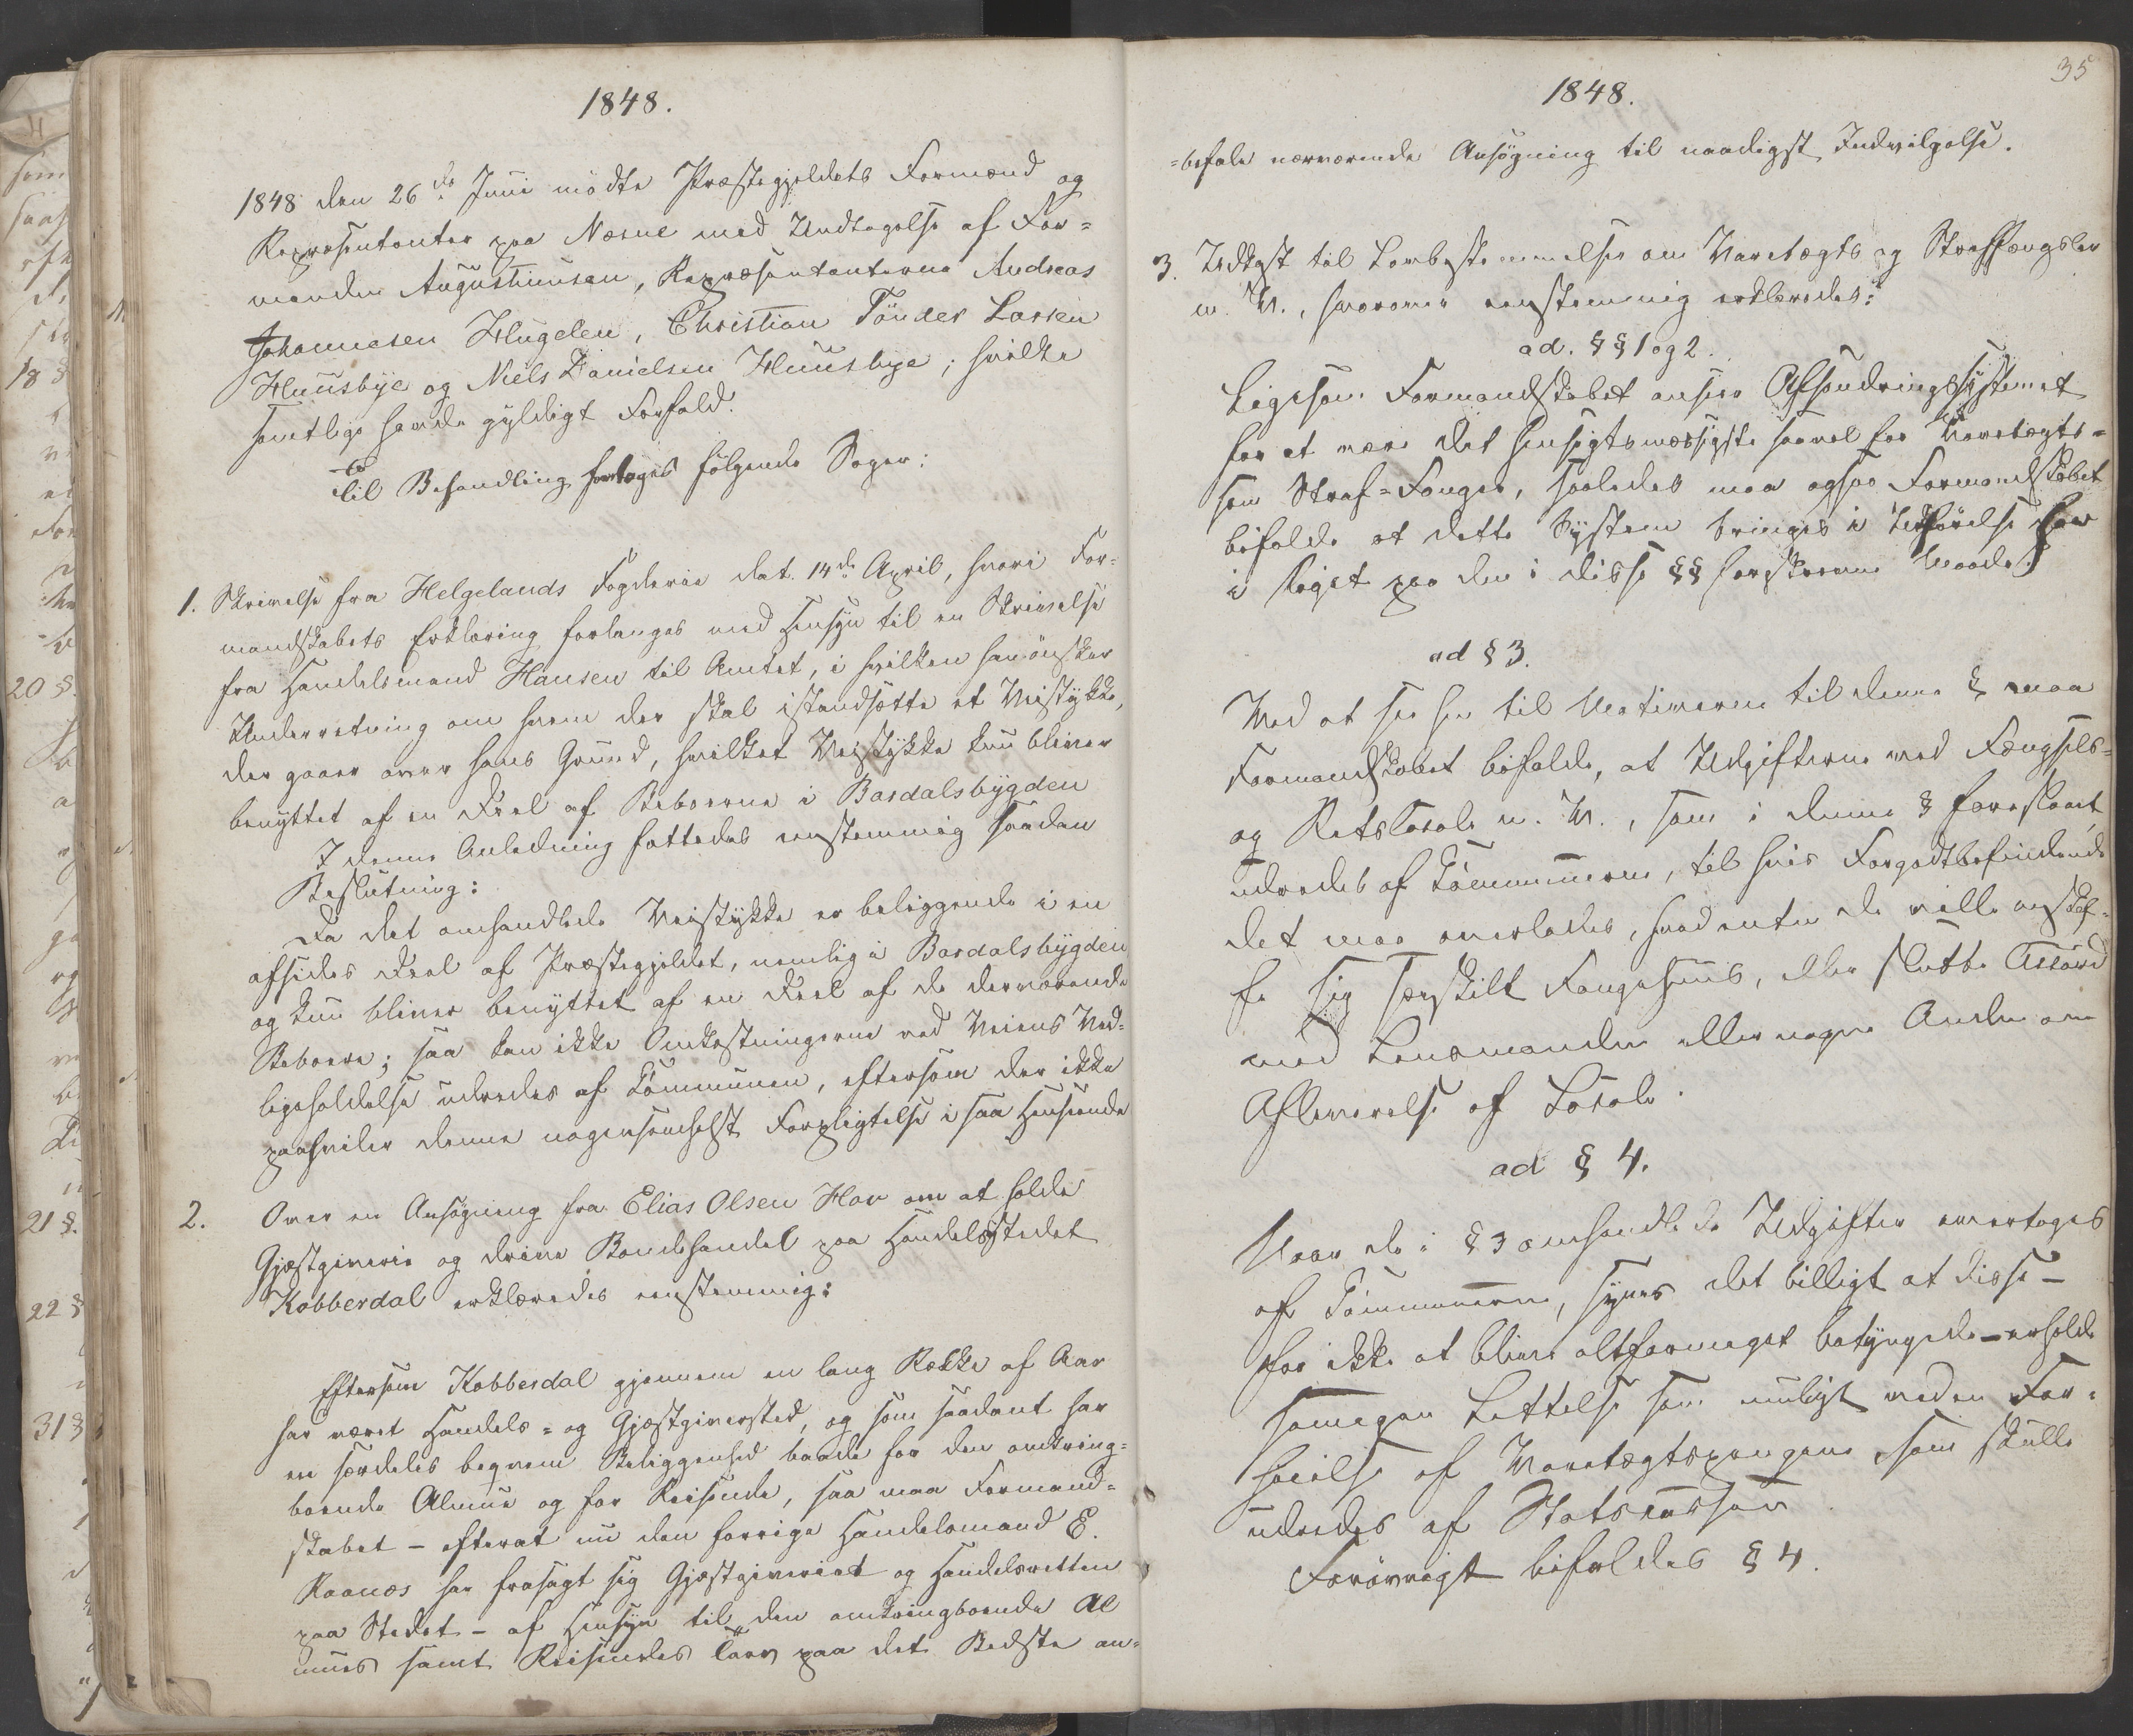 1848.
1848 den 26de Juni mödte Præstegjeldets Formænd og
Repræsentanter paa Næsne med Undtagelse af For=
manden Augustinusen, Repræsentanterne Andreas
Johannesen Hugelen, Christian Tönder Lassen
Huusbye og Niels Danielsen Huusbye; hvilke
samtlige havde gyldigt Forfald.
Til Behandling foretoges fölgende Sager:
1. Skrivelse fra Helgelands Fogderie dat. 14de April, hvori For=
mandskabets Erklæring forlanges med Hensyn til en Skrivelse
fra Handelsmand Hansen til Amtet, i hvilken han önsker
Underretning om hvem der skal istandsætte et Veistykke,
der gaaer over hans Grund, hvilket Veistykke kun bliver
benyttet af en Deel af Beboerne i Bardalsbygden
I denne Anledning fattedes eenstemmig saadan
Beslutning:
Da det omhandlede Veistykke er beliggende i en
afsides Deel af Præstegjeldet, nemlig i Bardalsbygden
og kun bliver benyttet af en Deel af de derværende
Beboere; saa kan ikke Omkostningerne ved Veiens Ved=
ligeholdelse udredes af Communen, eftersom der ikke
paahviler denne nogensomhelst Forpligtelse i saa Henseende
2. Over en Ansögning fra Elias Olsen Hov om at holde
Gjæstgiverie og drive Bondehandel paa Handelsstedet
Kobberdal erklæredes eenstemmig:
Eftersom Kobberdal gjennem en lang Række af Aar
har været Handels= og Gjæstgiversted, og som saadant har
en særdeles beqvem Beliggenhed baade for den omkring=
boende Almue og for Reisende, saa maa Formand=
skabet – efterat nu den forrige Handelsmand E.
Raanæs har frasagt sig Gjæstgiveriet og Handelsretten
paa Stedet – af Hensyn til den omkringboende Al
mues samt Reisendes Tarv paa det Bedste an=
35
1848.
=befale nærværende Ansögning til naadigst Indvilgelse.
3. Udkast til Lovbestemmelser om Varetægts og Straffængsler
m. V., hvorover eenstemmig erklæredes:
ad. §§ 1 og 2.
Ligesom Formandskabet anseer Afsondringssystemet
for at være det hensigtsmæssigste saavel for Varetægts=
som Straf=Fanger, saaledes maa ogsaa Formandskabet
bifalde at dette System bringes i Udförelse her
i Riget paa den i disse §§ foreskrevne Maade.
ad § 3.
Ved at see hen til Motiverne til denne § maa
Formandskabet bifalde, at Udgifterne med Fængsels=
og Retslocale m. V., som i denne § foreslaaet,
udredes af Communerne, til hvis Forgodtbefindende
det maa overlades, hvad enten de ville anskaf=
fe sig særskilt Fangehuus, eller slutte Accord
med Lensmanden eller nogen Anden om
Afleverelse af Locale.
ad § 4.
Naar de i § 3 omhandlede Udgifter overtages
af Communerne, synes det billigt at disse –
for ikke at blive altformeget betyngede – erholde
saamegen Lettelse som muligt ved en For=
höielse af Varetægtspengene som skulle
udredes af Statscassen
Forövrigt bifaldes § 4.